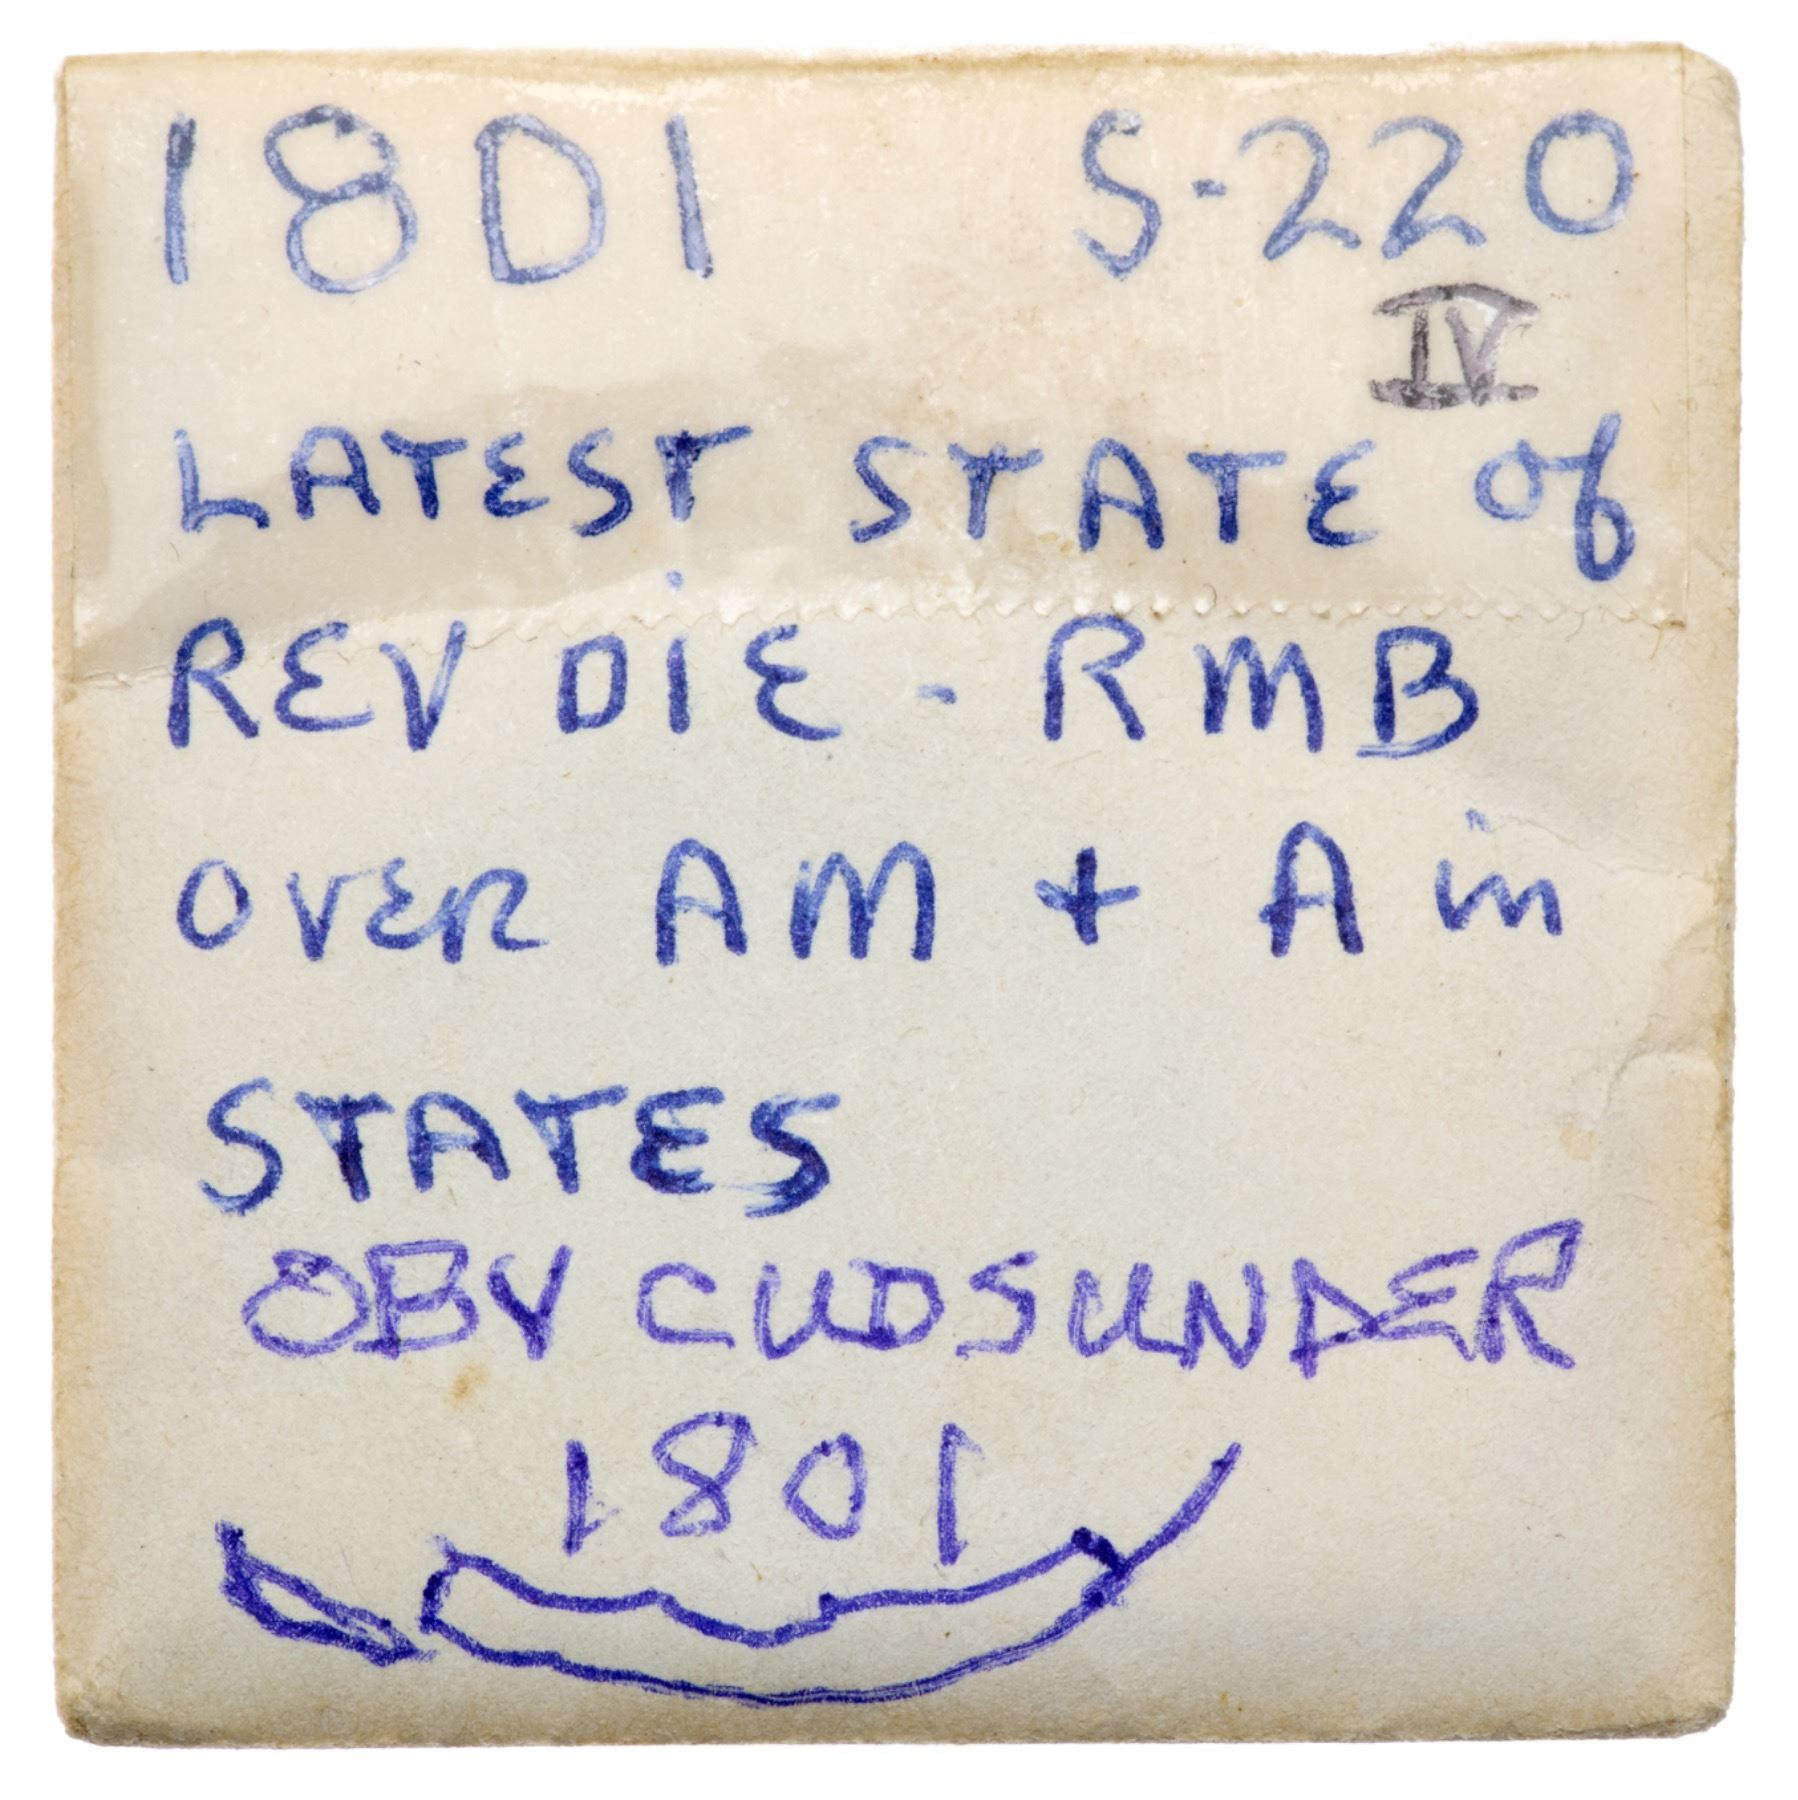 1801 S-220
IV
LATEST STATE of
REV DIE - RMB
OVER AM + A in
STATES
OBV CUDS UNDER
1801